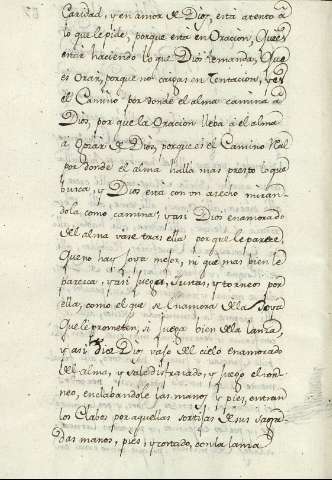 Caridad, y en amor de Dios, está atento â
lo que le pide, porque esta en Oracion, Que es
estar haciendo lo que Dios le manda, Que
es Orar, porque no caigas en Tentacion, y es
el Camino por donde el alma camina â
Dios, por que la Oracion lleba â el alma
a Gozar de Dios, porque es el Camino Real
por donde el alma halla mas presto lo que
busca, y Dios está con un azecho miran-
dola como camina; y asi Dios enamorado
del alma vase tras ella por que le parece,
Que no hay joya mejor, ni que mas bien le
paresca, y asi juega, Justas, y torneos por
ella, como el que se enamora de la Joya
Que le prometen, si juega bien de la lanza,
y asi Dios vajo del cielo enamorado
del alma, y sale disfrazado, y juego el tor-
neo, enclabandole las manos, y pies, entran
los Clabos por aquellas sortijas de sus sagra-
das manos, pies, y costado, con la lanza